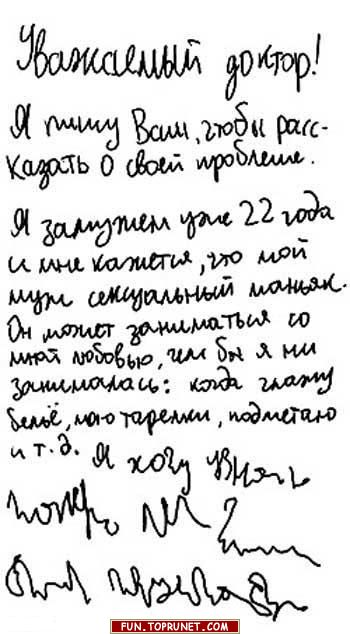 Уважаемый доктор!
Я пишу Вам, чтобы расс-
казать о своей проблеме.
Я замужем уже 22 года
и мне кажется, что мой
муж сексуальный маньяк.
Он может заниматься со
мной любовью, чем бы я ни
занималась: когда глажу
бельё, мою тарелки, подметаю
и т.д. Я хочу
FUN.TOPRUNET.COM